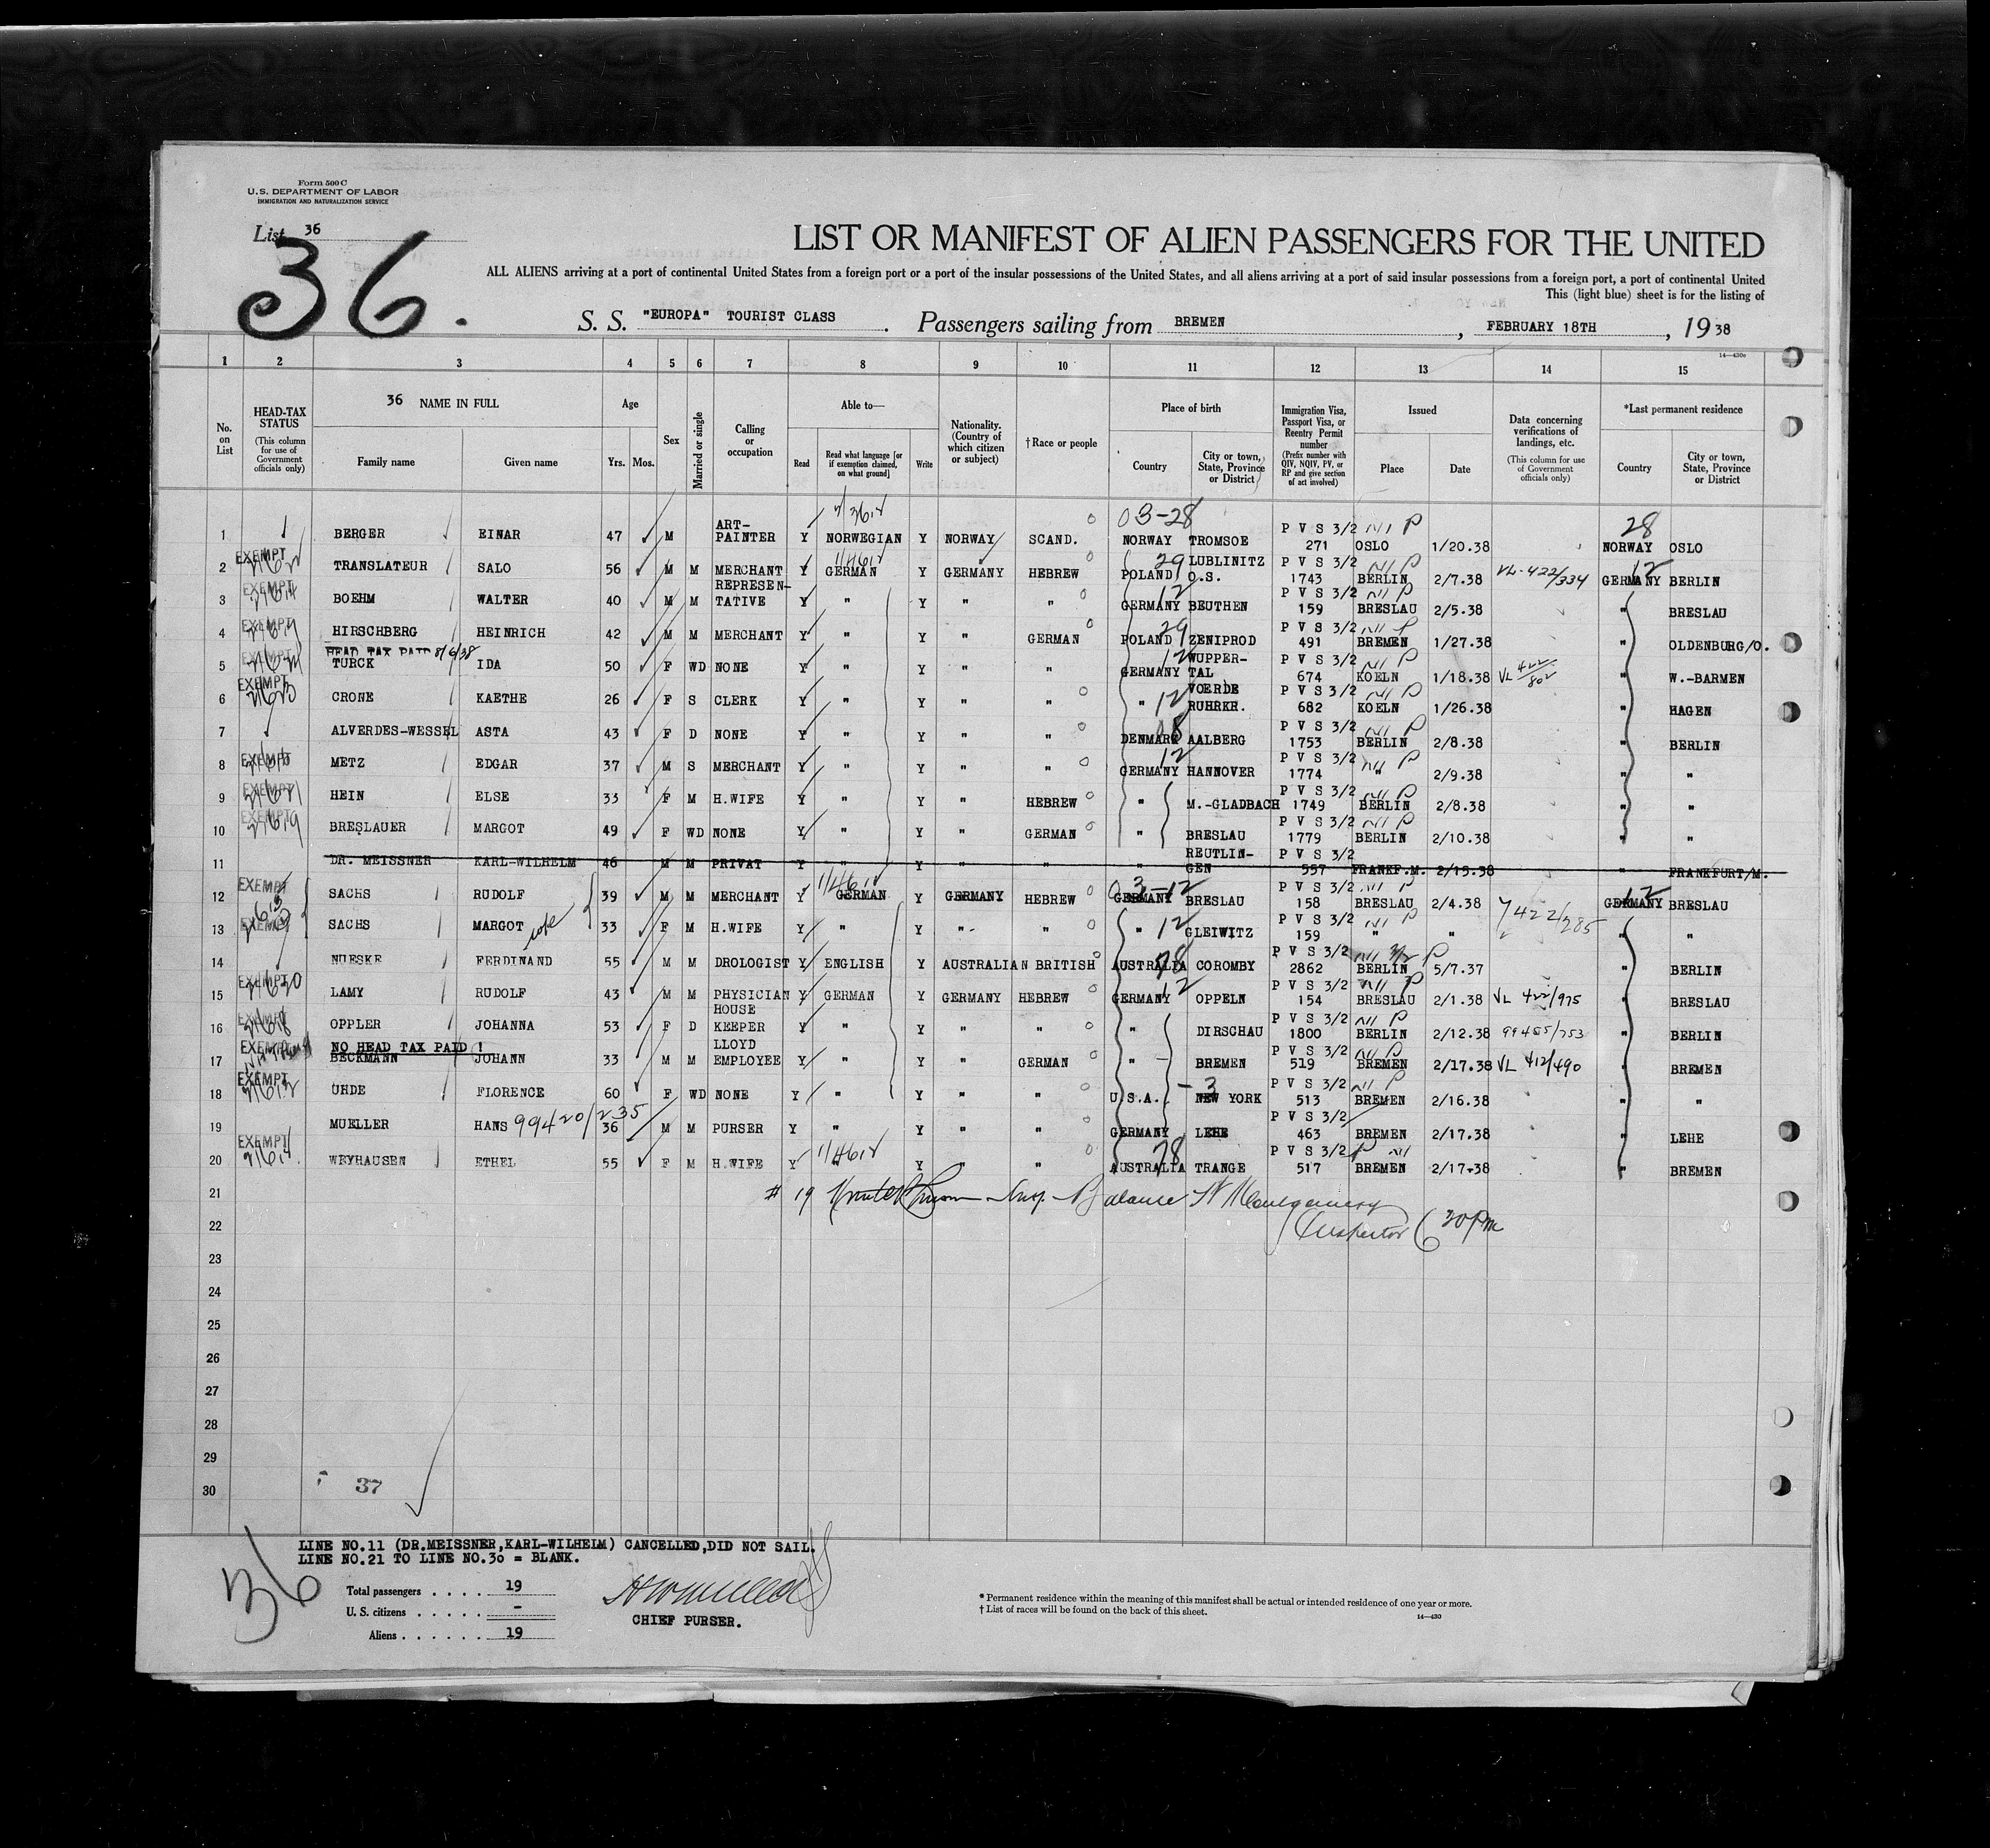 Form 500 C
U.S. DEPARTMENT OF LABOR
IMMIGRATION AND NATURALIZATION SERVICE
List 36
36.
LIST OR MANIFEST OF ALIEN PASSENGERS FOR THE UNITED
ALL ALIENS arriving at a port of continental United States from a foreign port or a port of the insular possessions of the United States, and all aliens arriving at a port of said insular possessions from a foreign port, a port of continental United
This (light blue) sheet is for the listing of
S. S. "EUROPA" TOURIST CLASS. Passengers sailing from BREMEN, FEBRUARY 18TH, 19 38
14—430c
1 2 3 4 5 6 7 8 9 10 11 12 13 14 15
No. on List
HEAD-TAX STATUS (This column for use of Government officials only)
36 NAME IN FULL
Family name Given name
Age Yrs. Mos.
Sex
Married or single
Calling or occupation
Able to— Read Read what language [or if exemption claimed, on what ground] Write
Nationality. (Country of which citizen or subject)
†Race or people
Place of birth Country City or town, State, Province or District
Immigration Visa, Passport Visa, or Reentry Permit number (Prefix number with QIV, NQIV, PV, or RP and give section of act involved)
Issued Place Date
Data concerning verifications of landings, etc. (This column for use of Government officials only)
*Last permanent residence Country City or town, State, Province or District
1 BERGER EINAR 47 M ART-PAINTER Y NORWEGIAN Y NORWAY SCAND. 03-28 NORWAY TROMSOE P V S 3/2 271 OSLO 1/20.38 28 NORWAY OSLO
2 EXEMPT TRANSLATEUR SALO 56 M M MERCHANT Y GERMAN Y GERMANY HEBREW 29 POLAND LUBLINITZ O.S. P V S 3/2 1743 BERLIN 2/7.38 VL-422/334 12 GERMANY BERLIN
3 EXEMPT BOEHM WALTER 40 M M REPRESEN-TATIVE Y " Y " " 12 GERMANY BEUTHEN P V S 3/2 159 BRESLAU 2/5.38 " BRESLAU
4 EXEMPT HIRSCHBERG HEINRICH 42 M M MERCHANT Y " Y " GERMAN 29 POLAND ZENIPROD P V S 3/2 491 BREMEN 1/27.38 " OLDENBURG/O.
HEAD TAX PAID 8/6/38
5 EXEMPT TURCK IDA 50 F WD NONE Y " Y " " 12 GERMANY WUPPER-TAL P V S 3/2 674 KOELN 1/18.38 VL 422/802 " W.-BARMEN
6 EXEMPT CRONE KAETHE 26 F S CLERK Y " Y " " " 12 VOERDE RUHRKR. P V S 3/2 682 KOELN 1/26.38 " HAGEN
7 ALVERDES-WESSEL ASTA 43 F D NONE Y " Y " " 08 DENMARK AALBERG P V S 3/2 1753 BERLIN 2/8.38 " BERLIN
8 EXEMPT METZ EDGAR 37 M S MERCHANT Y " Y " " 12 GERMANY HANNOVER P V S 3/2 1774 " 2/9.38 " "
9 EXEMPT HEIN ELSE 33 F M H.WIFE Y " Y " HEBREW " M.-GLADBACH P V S 3/2 1749 BERLIN 2/8.38 " "
10 EXEMPT BRESLAUER MARGOT 49 F WD NONE Y " Y " GERMAN " BRESLAU P V S 3/2 1779 BERLIN 2/10.38 " "
11 DR. MEISSNER KARL-WILHELM 46 M M PRIVAT Y " Y " " " REUTLIN-GEN P V S 3/2 557 FRANKF.M. 2/15.38 " FRANKFURT/M.
12 EXEMPT SACHS RUDOLF 39 M M MERCHANT Y GERMAN Y GERMANY HEBREW 03-12 GERMANY BRESLAU P V S 3/2 158 BRESLAU 2/4.38 GERMANY BRESLAU
13 EXEMPT SACHS MARGOT wife 33 F M H.WIFE Y " Y " " " 12 GLEIWITZ P V S 3/2 159 " " 422/285 " "
14 NUESKE FERDINAND 55 M M DROLOGIST Y ENGLISH Y AUSTRALIAN BRITISH 78 AUSTRALIA COROMBY P V S 3/2 2862 BERLIN 5/7.37 " BERLIN
15 EXEMPT LAMY RUDOLF 43 M M PHYSICIAN Y GERMAN Y GERMANY HEBREW 12 GERMANY OPPELN P V S 3/2 154 BRESLAU 2/1.38 VL 422/975 " BRESLAU
16 EXEMPT OPPLER JOHANNA 53 F D HOUSE KEEPER Y " Y " " " DIRSCHAU P V S 3/2 1800 BERLIN 2/12.38 99485/753 " BERLIN
NO HEAD TAX PAID !
17 EXEMPT BECKMANN JOHANN 33 M M LLOYD EMPLOYEE Y " Y " GERMAN " BREMEN P V S 3/2 519 BREMEN 2/17.38 VL 412/490 " BREMEN
18 EXEMPT UHDE FLORENCE 60 F WD NONE Y " Y " " U.S.A. - 3 NEW YORK P V S 3/2 513 BREMEN 2/16.38 " "
19 MUELLER HANS 99420/235 36 M M PURSER Y " Y " " GERMANY LEHE P V S 3/2 463 BREMEN 2/17.38 " LEHE
20 EXEMPT WEYHAUSEN ETHEL 55 F M H.WIFE Y " Y " " 78 AUSTRALIA TRANGE P V S 3/2 517 BREMEN 2/17.38 " BREMEN
21 # 19 Insp. Balance Montgomery
22 Inspector 6 30 PM
23
24
25
26
27
28
29
30
37
LINE NO.11 (DR.MEISSNER,KARL-WILHELM) CANCELLED,DID NOT SAIL.
LINE NO.21 TO LINE NO.3o = BLANK.
36
Total passengers . . . . 19
U. S. citizens . . . . . -
Aliens . . . . . . 19
CHIEF PURSER.
* Permanent residence within the meaning of this manifest shall be actual or intended residence of one year or more.
† List of races will be found on the back of this sheet.
14—430